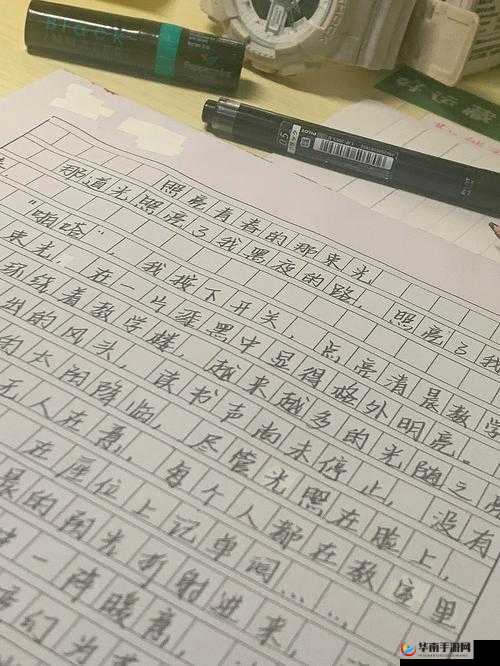 Black
05
PILOT
照亮青春的那束光
那道光照亮了我黑夜的路，照亮了我
"啪嗒"，我按下开关，点亮清晨教学
束光。在一片漆黑中显得格外明亮。
环绕着教学楼，越来越多的光随之
出的风头，读书声尚未停止，没有
的太阳降临，尽管光照在脸上，
无人在意，每个人都在教室里
在座位上记单词……
晨的阳光折射进来，
一阵暖意
们为
华南手游网